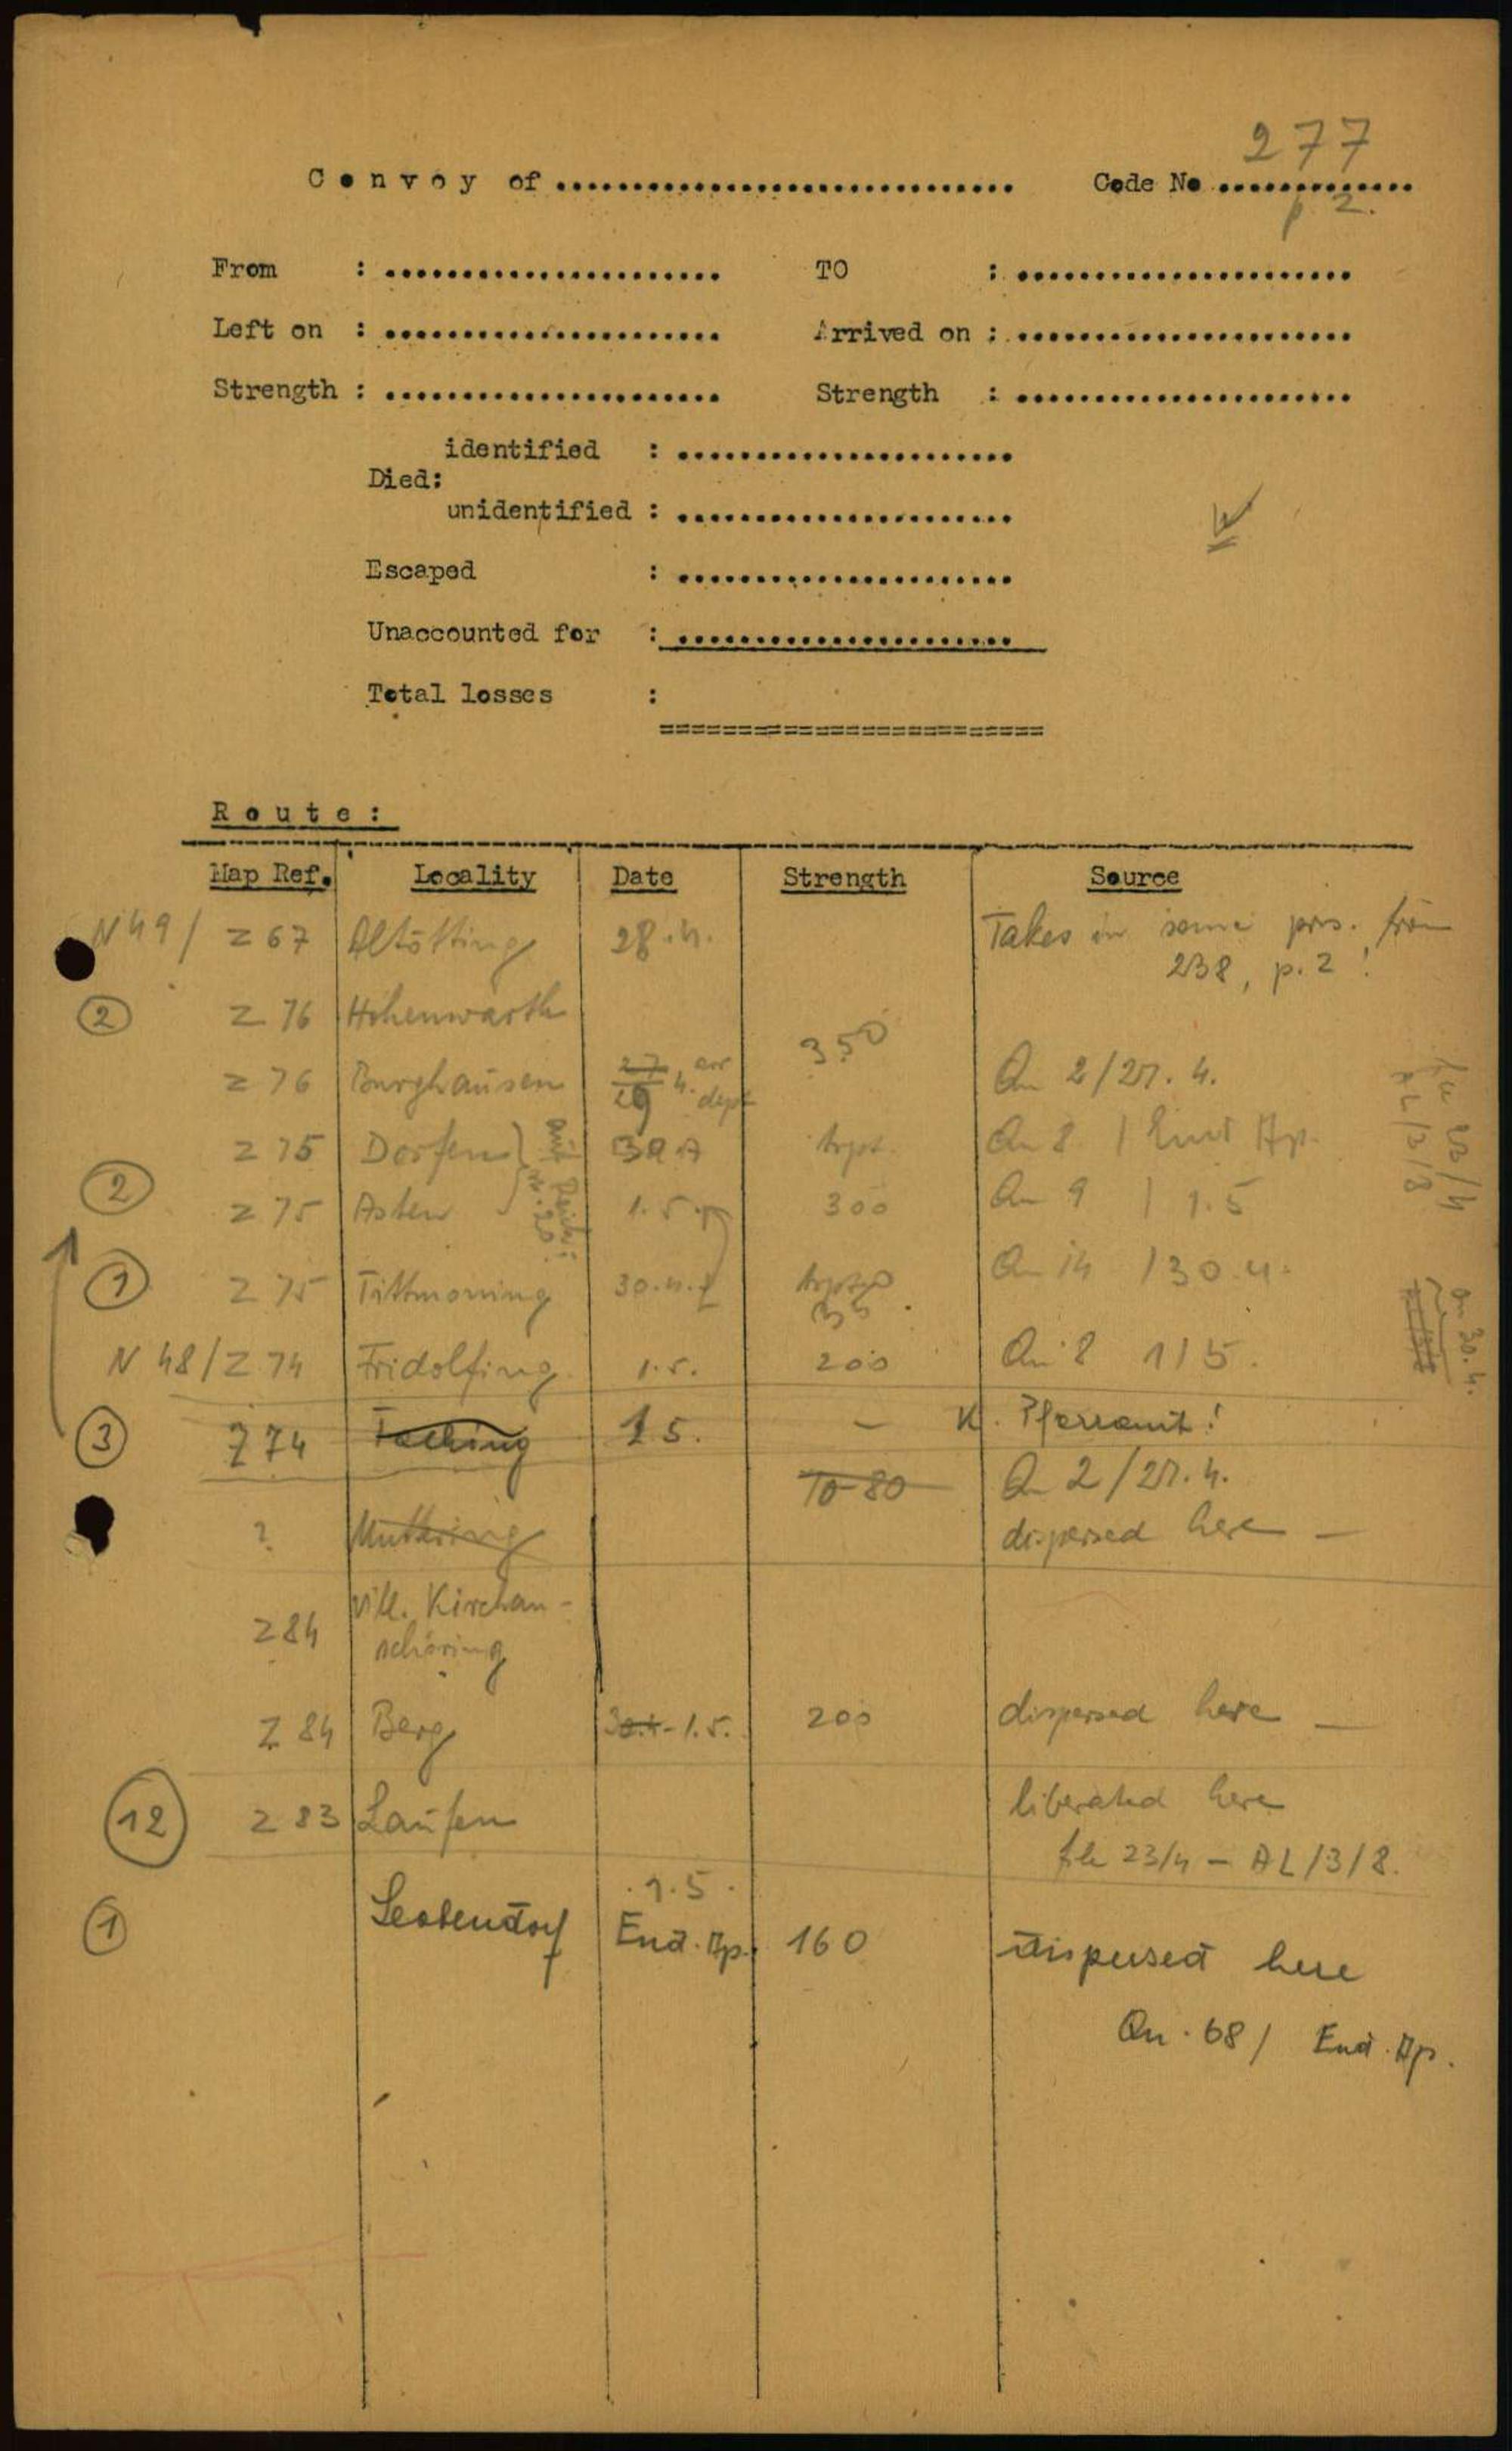 277
Convoy of .............................. Code No .............
p 2.
From : ...................... TO : ......................
Left on : ...................... Arrived on : ......................
Strength : ...................... Strength : ......................
identified : ......................
Died:
unidentified : ......................
Escaped : ......................
Unaccounted for : ......................
Total losses :
=========================
Route:
Map Ref. Locality Date Strength Source
N 49/ Z 67 Altötting 28.4. Takes in some pris. from
238, p. 2 !
② Z 76 Hohenwarth 350
Z 76 Burghausen 27 arr 29 4. dept Qu 2/27. 4.
Z 75 Dorfen Qu 8 /
② Z 75 Asten 1.5 300 Qu 9 / 1.5
① Z 75 Tittmoning 30.4. Qu 14 /30.4.
N 48/Z 74 Fridolfing 1.5. 200 Qu 8 1/5.
③ Z 74 Taching 1 5. – K. Pfarramt!
70-80 Qu 2/27.4.
? Muttering dispersed here —
Z 84 Vill. Kirchan-
schöring
Z 84 Berg 30.4-1.5. 200 dispersed here —
⑫ Z 83 Laufen liberated here
file 23/4 – AL/3/8.
① Leobendorf 1.5. End. Ap. 160 dispersed here
Qu. 68/ End. Ap.
Qu 30.4.